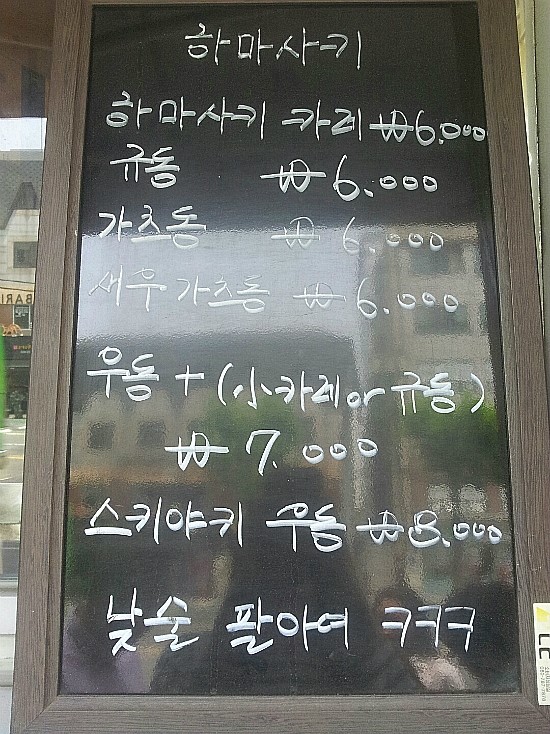 하마사키
하마사키 카레 ₩6.000
규동 ₩6.000
가츠동 ₩6.000
새우가츠동 ₩6.000
우동+(小카레or규동)
₩7.000
스키야키 우동 ₩8.000
낮술 팔아여 ㅋㅋㅋ